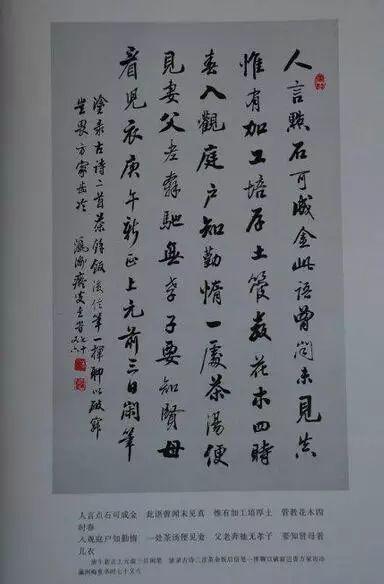 人言點石可成金此語曾聞未見真
惟有加工培厚土管教花木四時
春入觀庭户知勤惰一處茶湯便
見妻父老奔馳無孝子要知賢母
看兒衣庚午新正上元前三日閑筆
塗录古诗二首茶餘飯後信筆一揮聊以破寂
豈畏方家齿冷 瀛洲 叟 七十又六
人言点石可成金 此语曾闻未见真 惟有加工培厚土 管教花木四
时春
入观庭户知勤惰 一处茶汤便见妻 父老奔驰无孝子 要知贤母看
儿衣
庚午新正上元前三日闲笔 塗录古诗二首茶余饭后信笔一挥聊以破寂岂畏方家齿冷
瀛洲 叟书时七十又六